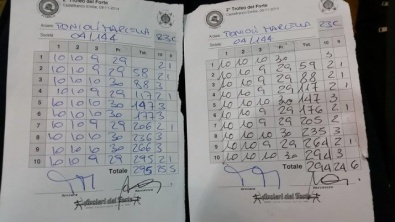 2° Trofeo del Forte
TONIOLI MARCELLA 23C
04/144
1 2 3 Pr. Tot. 10 9
1 10 10 9 29 2 1
2 10 10 9 29 58 2 1
3 10 10 10 30 88 3
4 10 10 9 29 117 2 1
5 10 10 10 30 147 3
6 10 10 10 30 177 3
7 10 10 9 29 206 2 1
8 10 10 10 30 236 3
9 10 10 10 30 266 3
10 10 10 9 29 295 2 1
Totale 295 25 5
Arcieri del Forte
2° Trofeo del Forte
TONIOLI MARCELLA 23C
04/144
1 2 3 Pr. Tot. 10 9
1 10 10 10 30 3
2 10 10 9 29 59 2 1
3 10 10 9 29 88 2 1
4 10 10 9 29 117 2 1
5 10 10 10 30 147 3
6 10 10 9 29 176 2 1
7 10 10 9 29 205 2 1
8 10 10 10 30 235 3
9 10 10 9 29 264 2 1
10 10 10 10 30 294 3
Totale 294 24 6
Arcieri del Forte